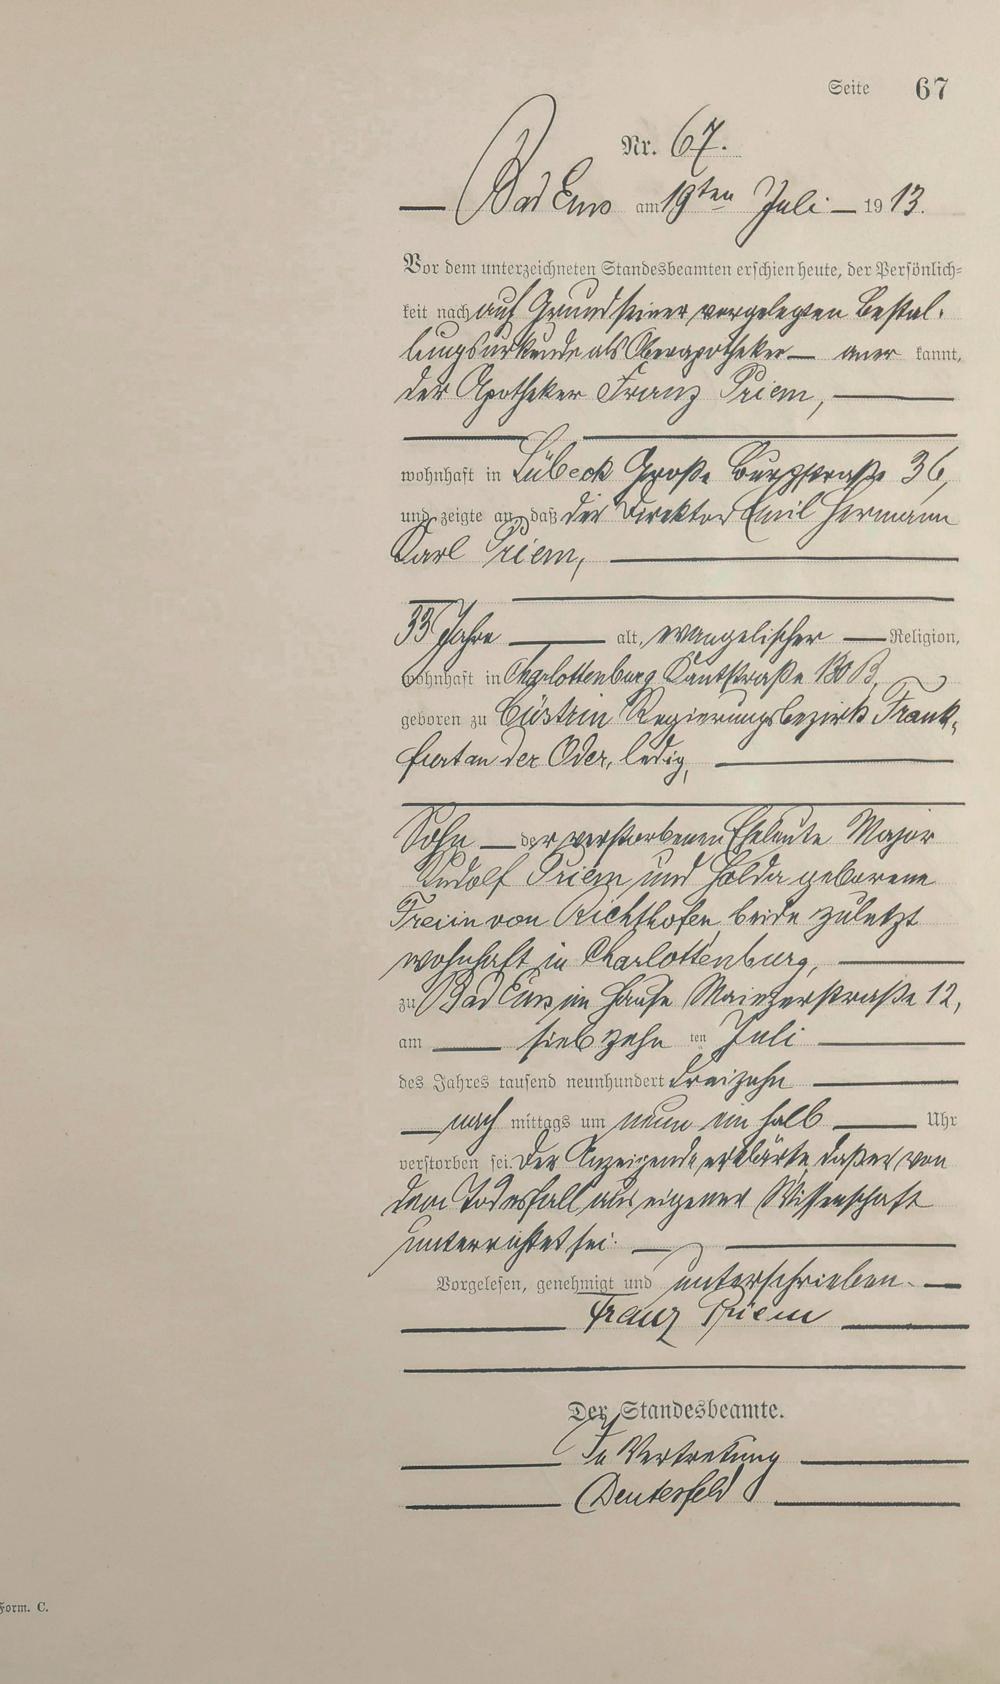 Seite 67
Nr. 67.
Bad Ems am 19ten Juli 1913.
Vor dem unterzeichneten Standesbeamten erschien heute, der Persönlich=
keit nach auf Grund seiner vorgelegten Bestal-
lungsurkunde als Oberapotheker — aner kannt,
der Apotheker Franz Priem,
wohnhaft in Lübeck Große Burgstraße 36,
und zeigte an, daß der Direktor Emil Hermann
Karl Priem,
33 Jahre alt, evangelischer Religion,
wohnhaft in Charlottenburg Kantstraße 130 B,
geboren zu Cüstrin Regierungsbezirk Frank-
furt an der Oder, ledig,
Sohn der verstorbenen Eheleute Major
Rudolf Priem und Hulda geborene
Freiin von Richthofen, beide zuletzt
wohnhaft in Charlottenburg,
zu Bad Ems im Hause Mainzerstraße 12,
am siebzehn ten Juli
des Jahres tausend neunhundert dreizehn
nach mittags um neun ein halb Uhr
verstorben sei. Der Anzeigende erklärte, daß er von
dem Todesfall aus eigener Wissenschaft
unterrichtet sei.
Vorgelesen, genehmigt und unterschrieben.
Franz Priem
Der Standesbeamte.
In Vertretung
Deutesfeld
Form. C.